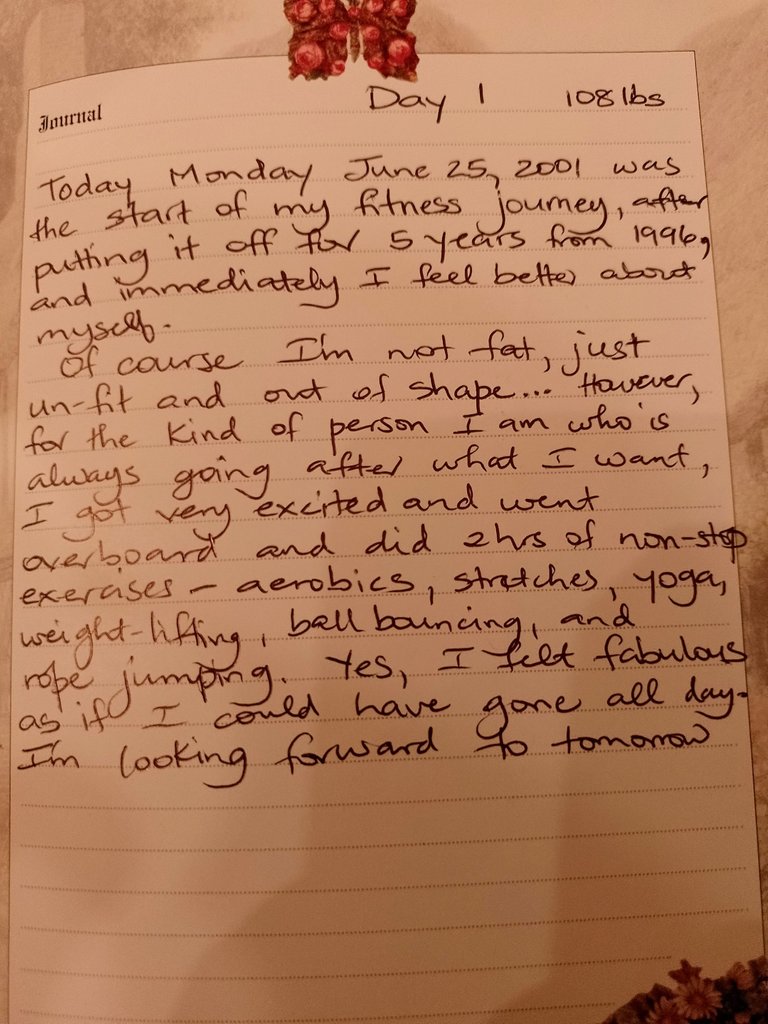 Journal Day 1 108 lbs
Today Monday June 25, 2001 was
the start of my fitness journey, after
putting it off for 5 years from 1996,
and immediately I feel better about
myself.
Of course I'm not fat, just
un-fit and out of shape... However,
for the kind of person I am who's
always going after what I want,
I got very excited and went
overboard and did 2hrs of non-stop
exercises - aerobics, stretches, yoga,
weight-lifting, ball bouncing, and
rope jumping. Yes, I felt fabulous
as if I could have gone all day.
I'm looking forward to tomorrow